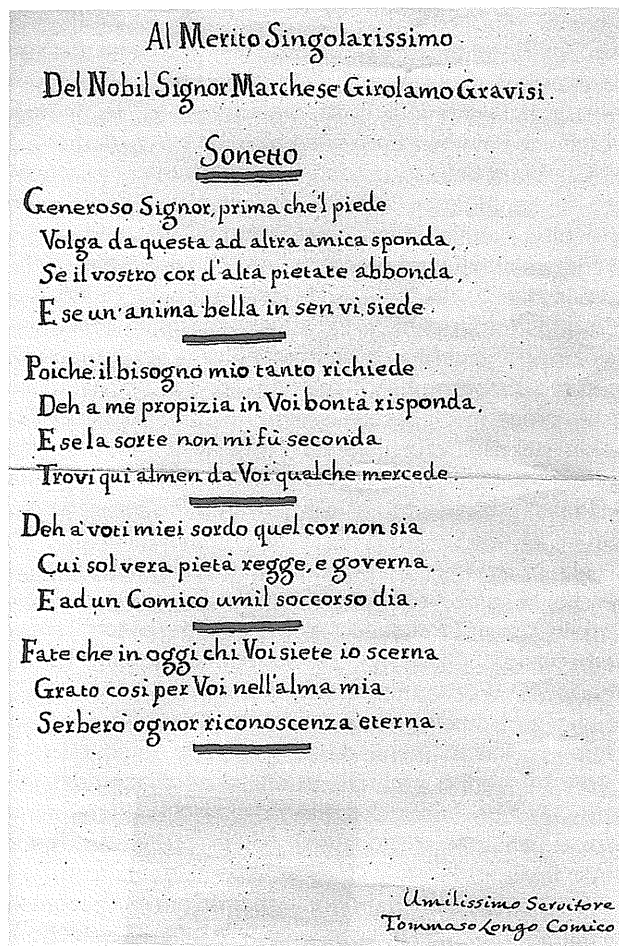 Al Merito Singolarissimo
Del Nobil Signor Marchese Girolamo Gravisi.
Sonetto
Generoso Signor, prima che'l piede
Volga da questa ad altra amica sponda,
Se il vostro cor d'alta pietate abbonda,
E se un'anima bella in sen vi siede.
Poichè il bisogno mio tanto richiede
Deh a me propizia in Voi bontà risponda,
E se la sorte non mi fù seconda
Trovi qui almen da Voi qualche mercede.
Deh a' voti miei sordo quel cor non sia
Cui sol vera pietà regge, e governa,
E ad un Comico umil soccorso dia.
Fate che in oggi chi Voi siete io scerna
Grato così per Voi nell'alma mia
Serberò ognor riconoscenza eterna.
Umilissimo Servitore
Tommaso Longo Comico